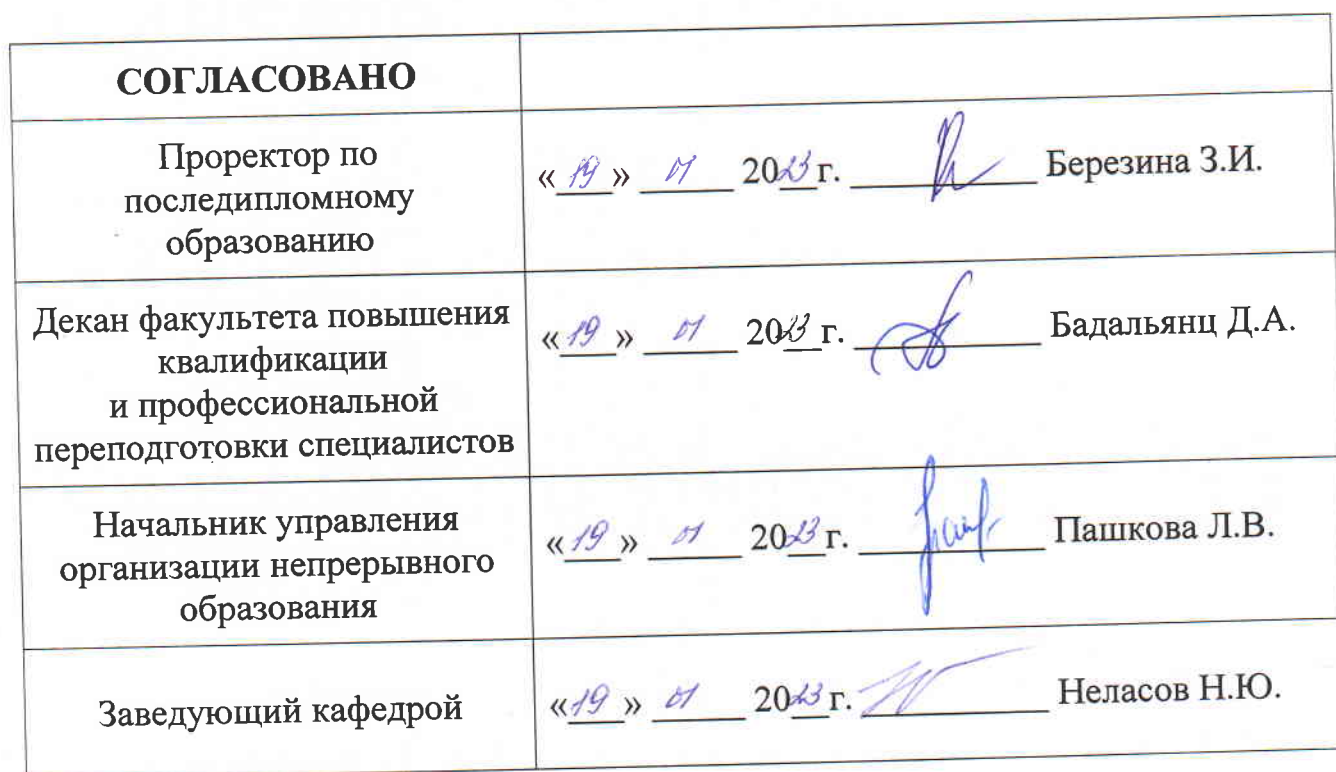 СОГЛАСОВАНО
Проректор по
последипломному
образованию
«19» 01 2023г. Березина З.И.
Декан факультета повышения
квалификации
и профессиональной
переподготовки специалистов
«19» 01 2023 г. Бадальянц Д.А.
Начальник управления
организации непрерывного
образования
«19» 01 2023г. Пашкова Л.В.
Заведующий кафедрой
«19» 01 2023г. Неласов Н.Ю.